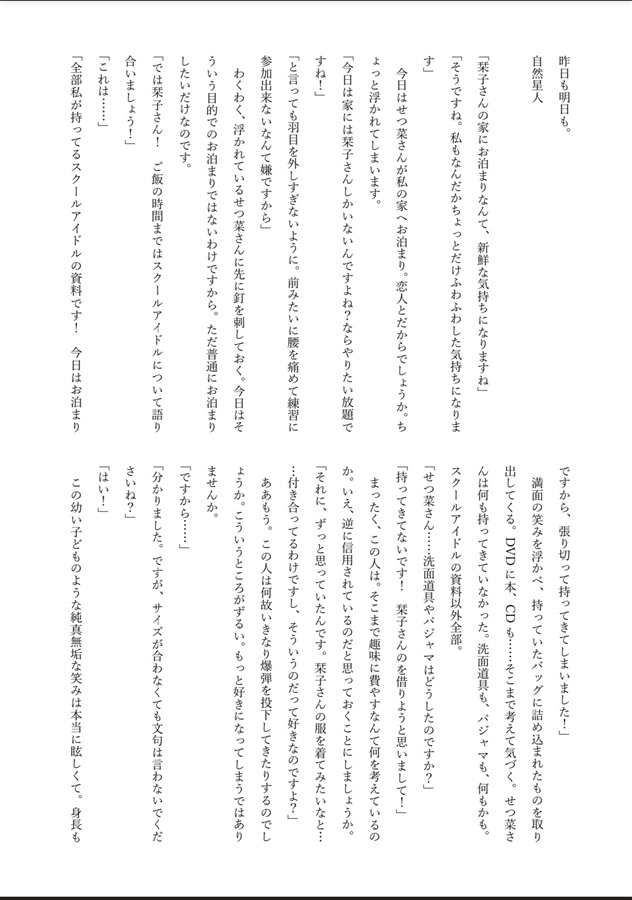 昨日も明日も。
自然星人
「栞子さんの家にお泊まりなんて、新鮮な気持ちになりますね」
「そうですね。私もなんだかちょっとだけふわふわした気持ちになりま
す」
　今日はせつ菜さんが私の家へお泊まり。恋人とだからでしょうか。ち
ょっと浮かれてしまいます。
「今日は家には栞子さんしかいないんですよね？ならやりたい放題で
すね！」
「と言っても羽目を外しすぎないように。前みたいに腰を痛めて練習に
参加出来ないなんて嫌ですから」
　わくわく、浮かれているせつ菜さんに先に釘を刺しておく。今日はそ
ういう目的でのお泊まりではないわけですから。ただ普通にお泊まり
したいだけなのです。
「では栞子さん！　ご飯の時間まではスクールアイドルについて語り
合いましょう！」
「これは……」
「全部私が持ってるスクールアイドルの資料です！　今日はお泊まり
ですから、張り切って持ってきてしまいました！」
　満面の笑みを浮かべ、持っていたバッグに詰め込まれたものを取り
出してくる。DVDに本、CDも……そこまで考えて気づく。せつ菜さ
んは何も持ってきていなかった。洗面道具も、パジャマも、何もかも。
スクールアイドルの資料以外全部。
「せつ菜さん……洗面道具やパジャマはどうしたのですか？」
「持ってきてないです！　栞子さんのを借りようと思いまして！」
　まったく、この人は。そこまで趣味に費やすなんて何を考えているの
か。いえ、逆に信用されているのだと思っておくことにしましょうか。
「それに、ずっと思っていたんです。栞子さんの服を着てみたいなと…
…付き合ってるわけですし、そういうのだって好きなのですよ？」
　ああもう。この人は何故いきなり爆弾を投下してきたりするのでし
ょうか。こういうところがずるい。もっと好きになってしまうではあり
ませんか。
「ですから……」
「分かりました。ですが、サイズが合わなくても文句は言わないでくだ
さいね？」
「はい！」
　この幼い子どものような純真無垢な笑みは本当に眩しくて。身長も